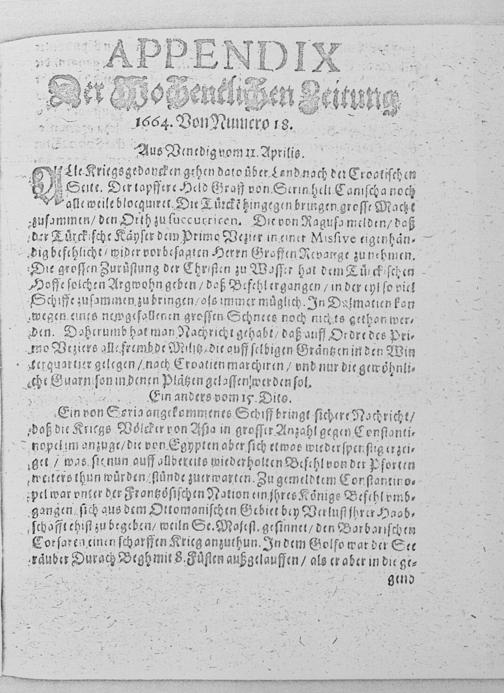 APPENDIX
Der Wochentlichen Zeitung
1664. Von Numero 18.
Aus Venedig vom 11. Aprilis.
ALle Kriegsgedancken gehen dato über Land nach der Croatischen
Seite. Der tapffere Held Graff von Serin helt Canischa noch
alleweile blocquiret. Die Türckē hingegen bringen grosse Macht
zusammen / den Orth zu succurriren. Die von Ragusa melden / daß
der Türckische Käyser dem Primo Vezier in einer Missive eigenhän-
dig befehlicht / wider vorbesagten Herrn Graffen Revange zu nehmen.
Die grossen Zurüstung der Christen zu Wasser hat dem Türckischen
Hoffe solchen Argwohn geben / daß Befehl ergangen / in der eyl so viel
Schiffe zusammen zubringen / als immer müglich. In Dalmatien kan
wegen eines newgefallenen grossen Schnees noch nichts gethan wer-
den. Daherumb hat man Nachricht gehabt / daß auff Ordre des Pri-
mo Veziers alle frembde Militz / die auff selbigen Gräntzen in den Win
terquartier gelegen / nach Croatien marchiren / und nur die gewöhnli-
che Guarnison in denen Plätzen gelassen werden sol.
Ein anders vom 15. Dito.
Ein von Soria angekommenes Schiff bringt sichere Nachricht /
daß die Kriegs Völcker von Asia in grosser Anzahl gegen Constanti-
nopel im anzuge / die von Egypten aber sich etwas wiederspenstig erzei-
get / was sie nun auff allbereits wiederholten Befehl von der Pforten
weiters thun würden / stünde zuerwarten. Zu gemeldtem Constantino-
pel war unter der Frantzösischen Nation ein ihres Königs Befehl umb-
gangen / sich aus dem Ottomanischen Gebiet bey Verlust ihrer Haab-
schafft ehist zu begeben / weiln Se. Majest. gesinnet / den Barbarischen
Corsaren einen scharffen Krieg anzuthun. In dem Golfo war der See
räuber Durach Begh mit 8. Fusten außgelauffen / als er aber in die ge-
gend